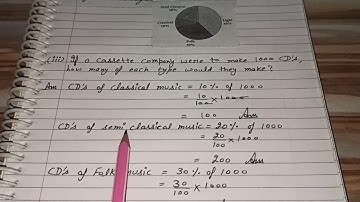 Semi Classical
20%
Classical
10%
Light
40%
Folk
30%
(iii) If a cassette company were to make 1000 CD's,
how many of each type would they make?
Ans CD's of classical music = 10% of 1000
= 10/100 × 1000
= 100 Ans
CD's of semi classical music = 20% of 1000
= 20/100 × 1000
= 200 Ans
CD's of Folk music = 30% of 1000
= 30/100 × 1000